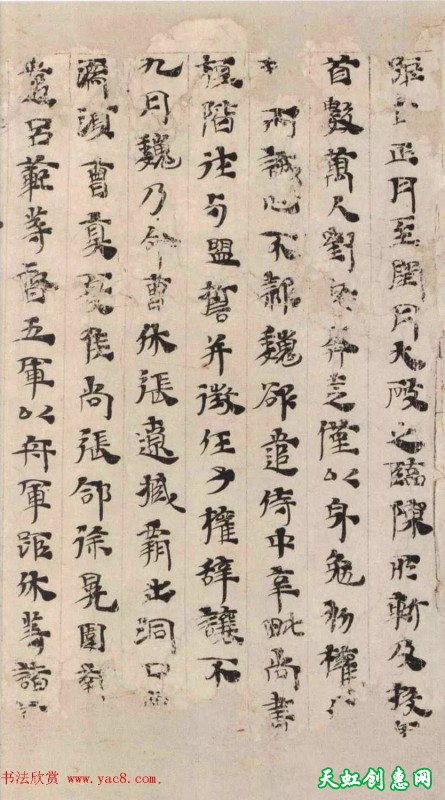 距正月至閏月大破之臨陳所斬及投
首數萬人劉備奔走僅以身免初權
而誠心不款魏欲遣侍中辛毗尚書
桓階往与盟誓并徵任子權辭讓不
九月魏乃命曹休張遼臧霸出洞口
濡須曹真夏侯尚張郃徐晃圍南
遣呂範等督五軍以舟軍距休等諸
书法欣赏 www.yac8.com
天虹创惠网